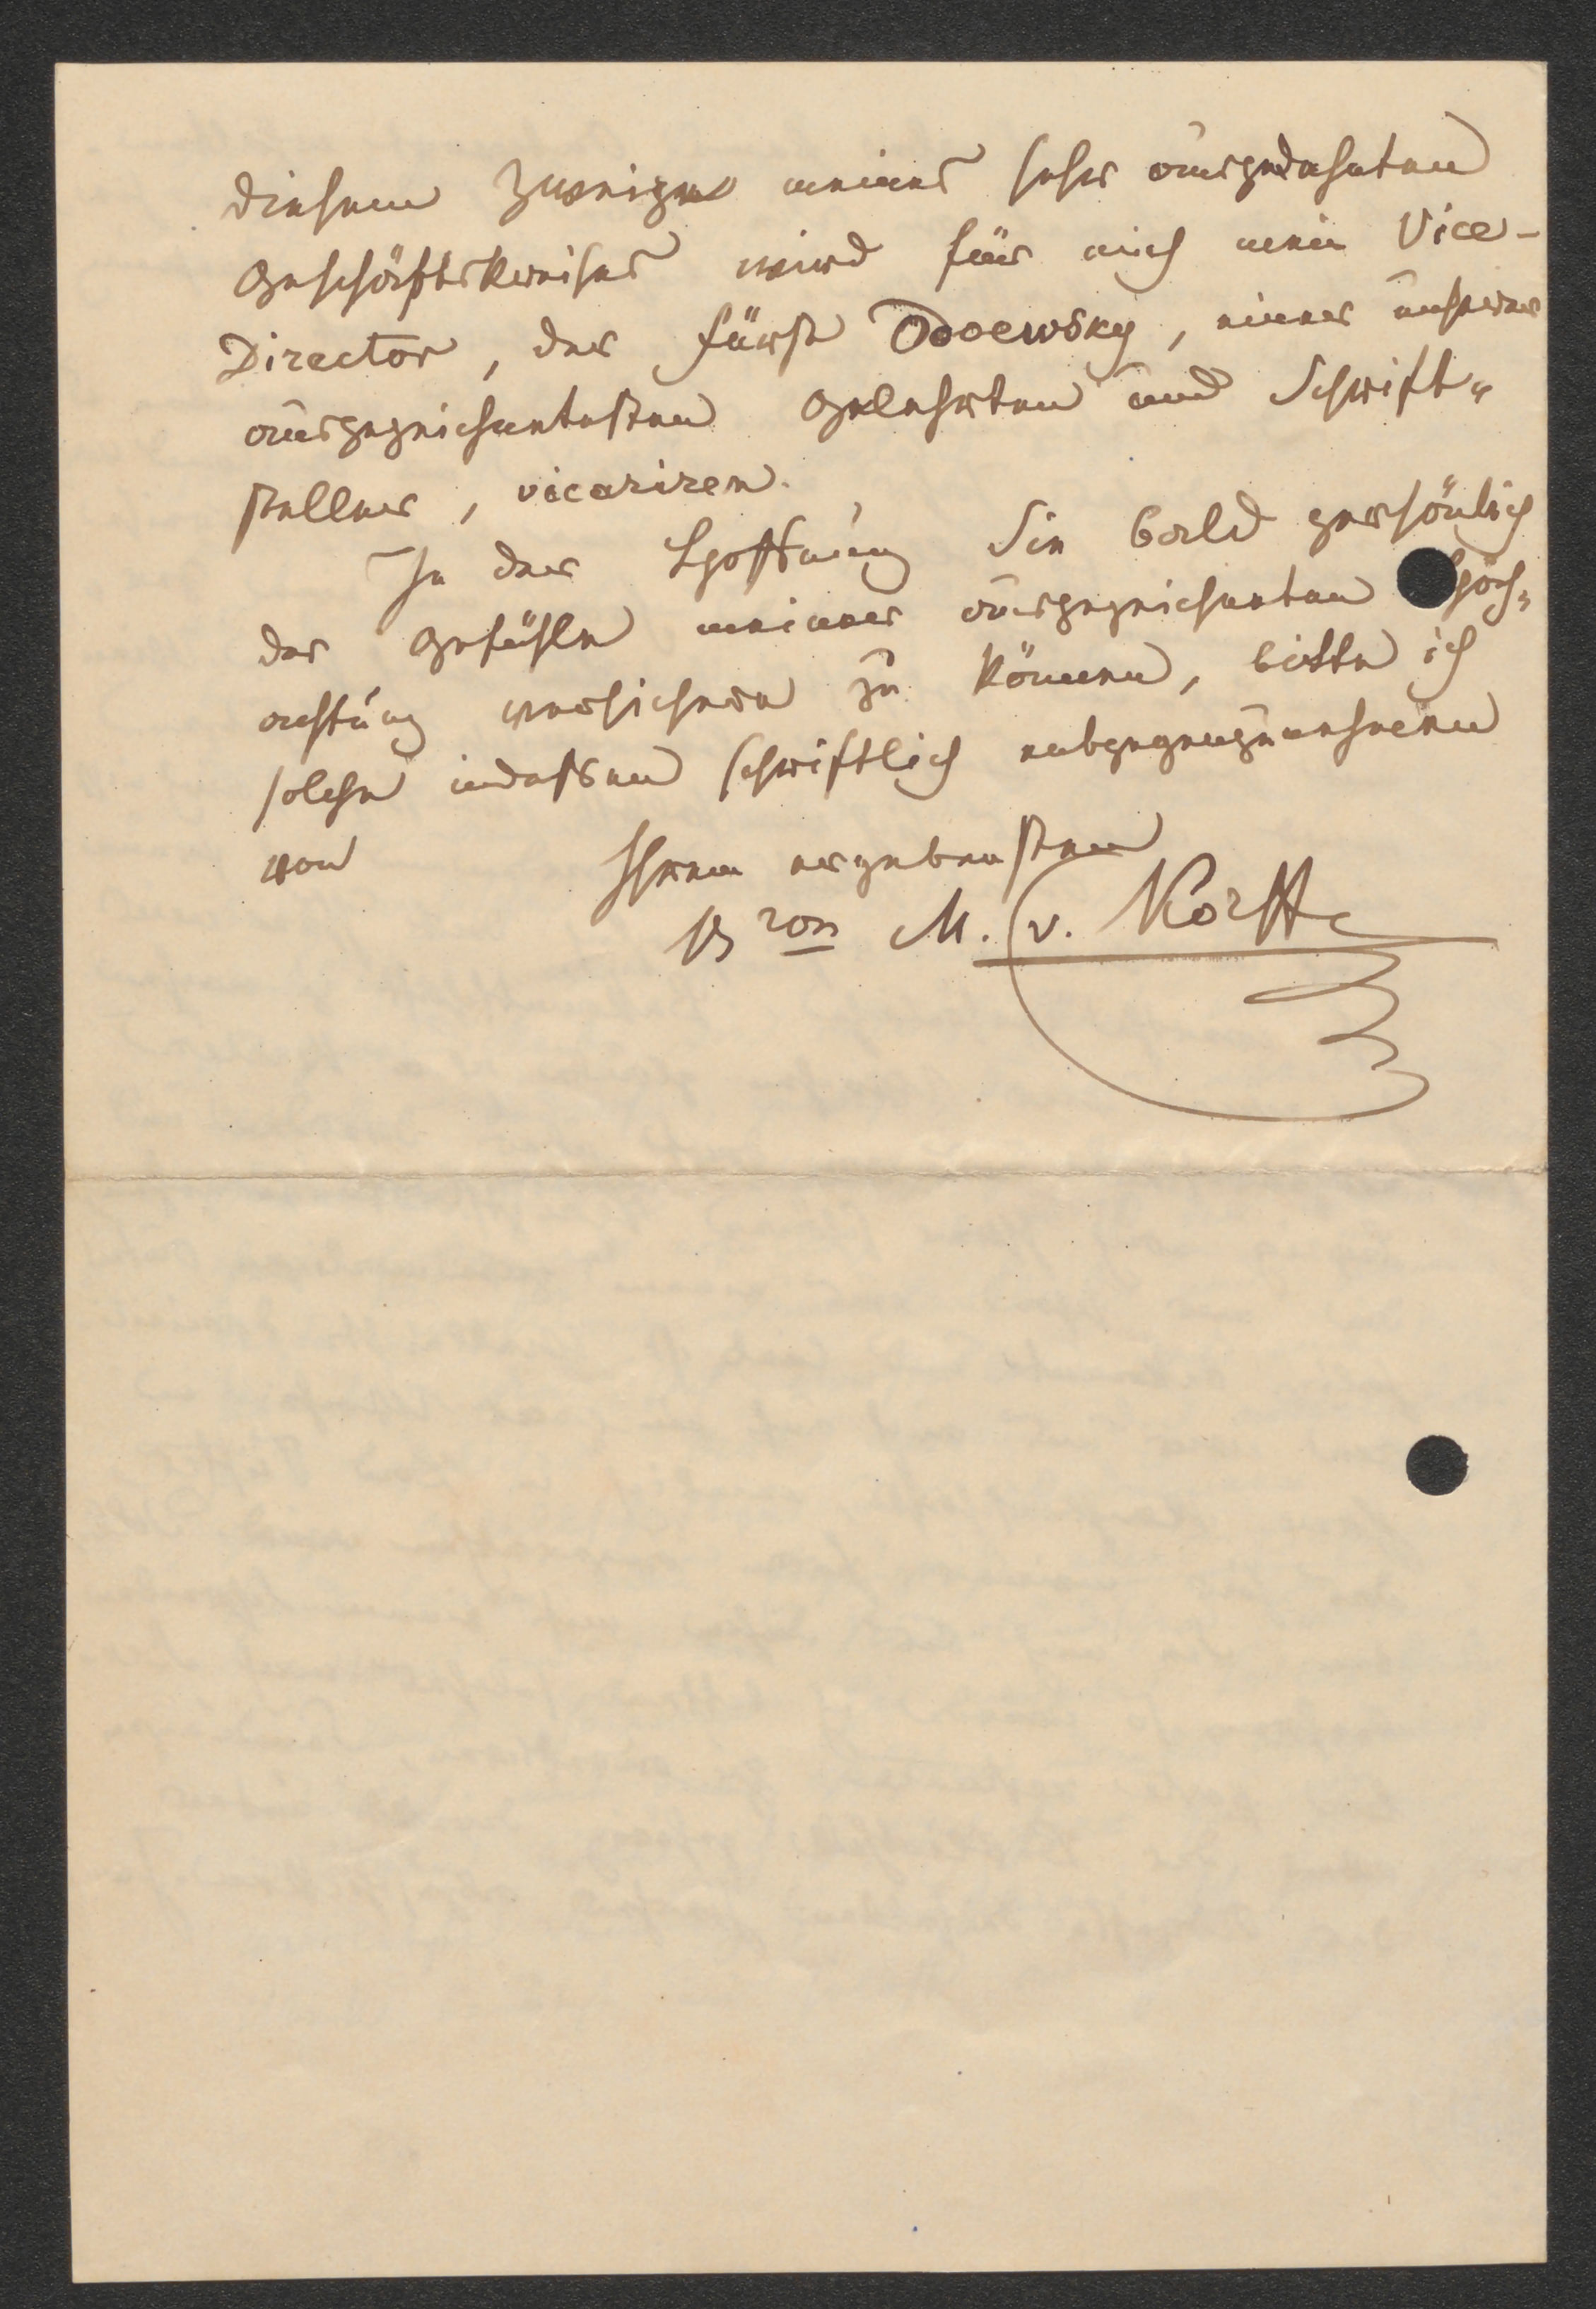 diesem Zweige meines sehr ausgedehnten
Geschäftskreises wird für mich mein Vice-
Director, der Fürst Odoewsky, einer unserer
ausgezeichnetesten Gelehrten und Schrift-
steller, vicariren.
In der Hoffnung Sie bald persönlich
der Gefühle meiner ausgezeichneten Hoch-
achtung versichern zu können, bitte ich
solche indessen schriftlich entgegenzunehmen
von Ihrem ergebensten
Bron M. v. Korff